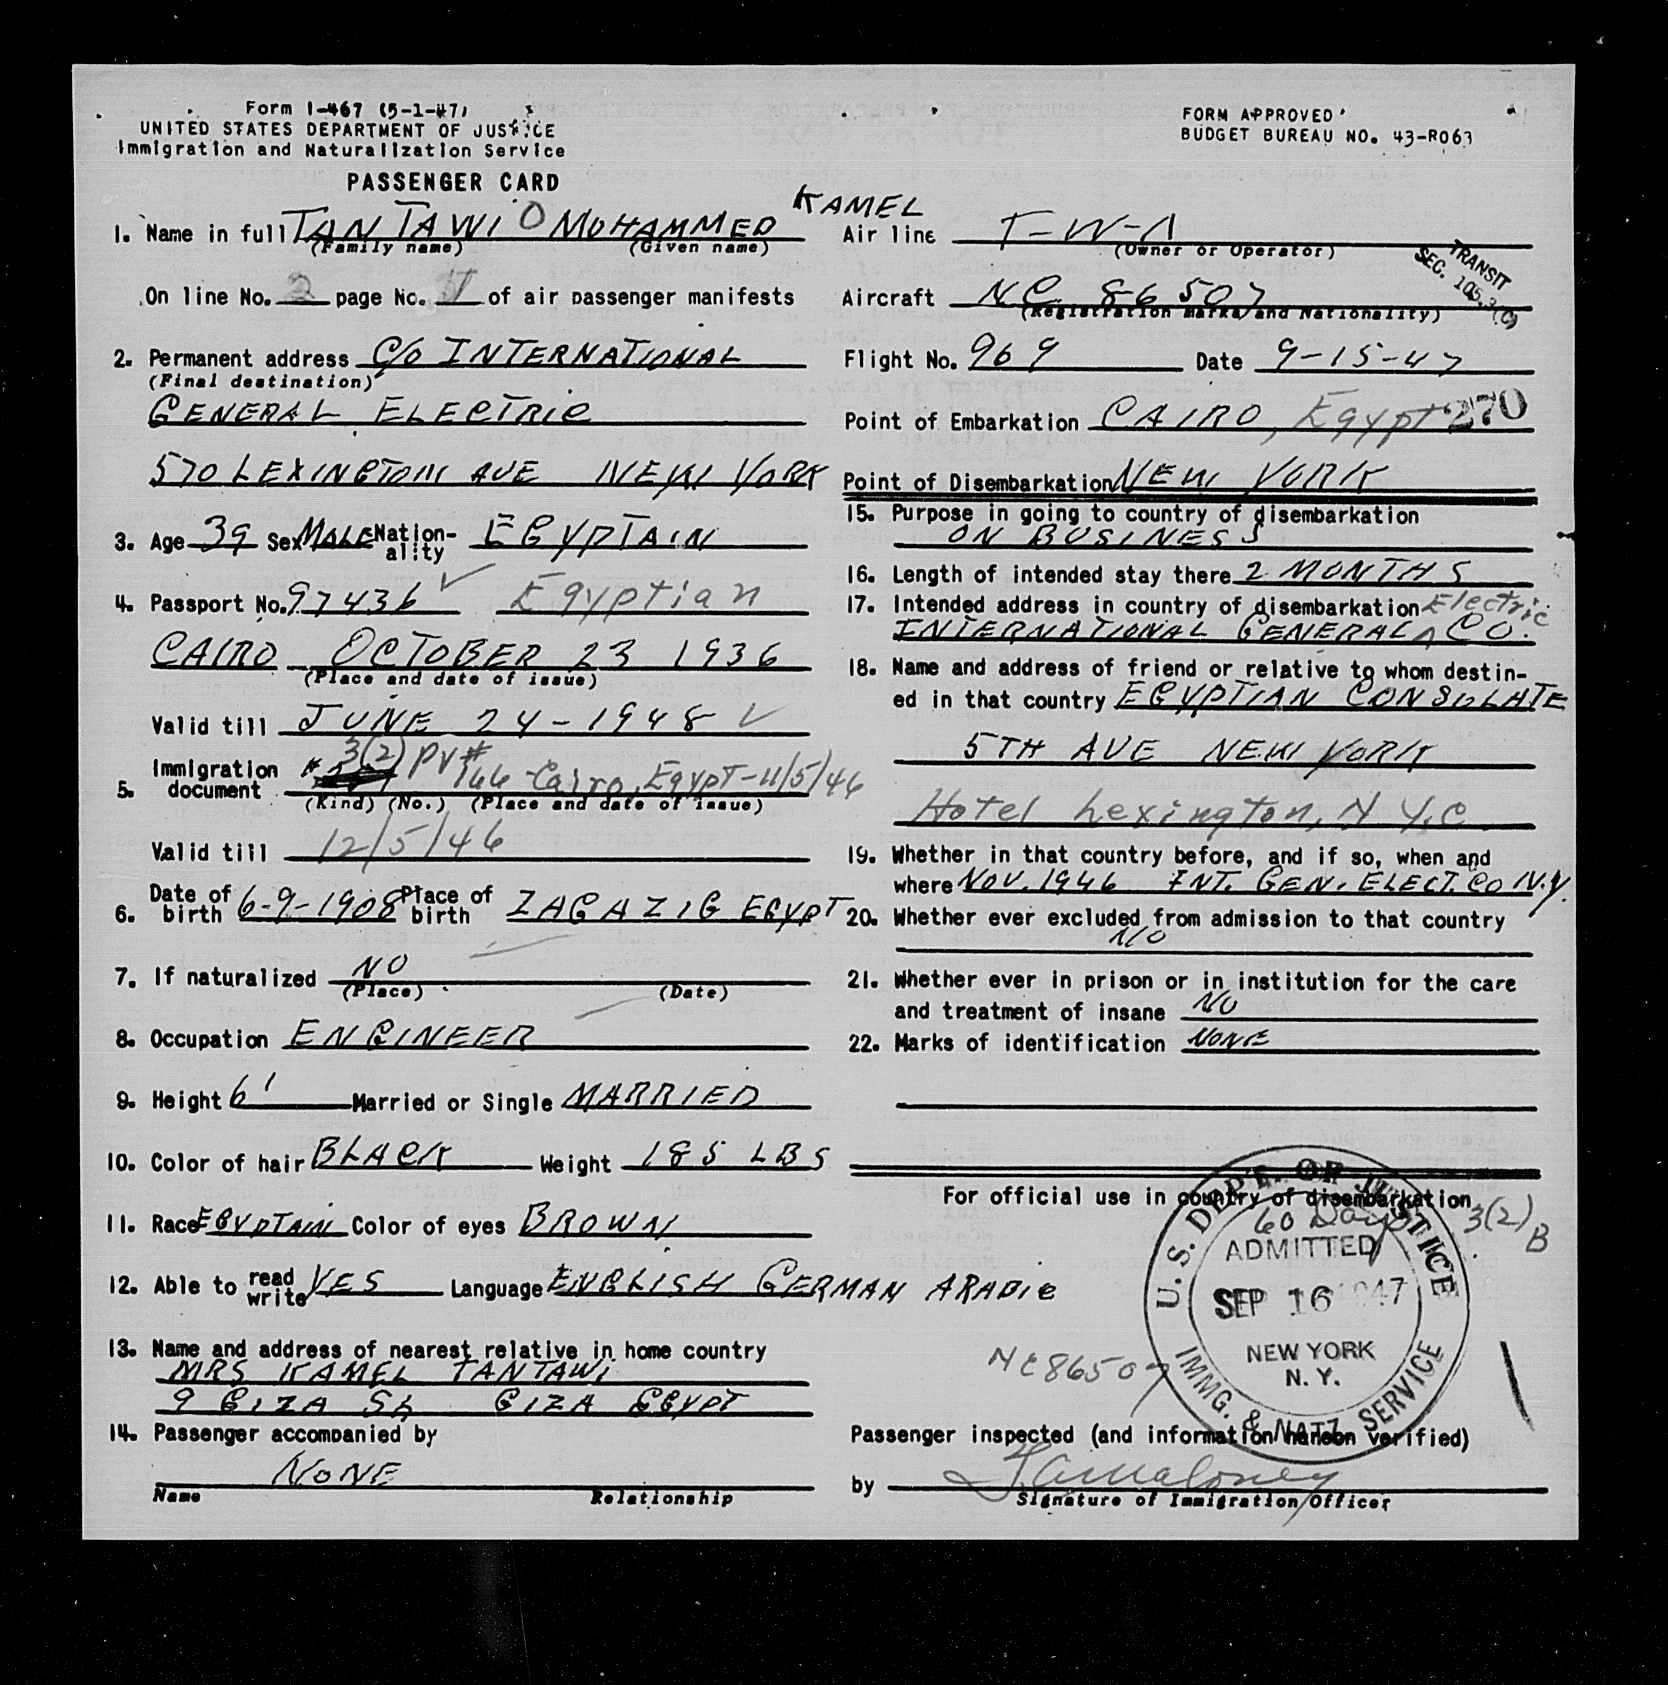 Form I-467 (5-1-47)
UNITED STATES DEPARTMENT OF JUSTICE
Immigration and Naturalization Service
PASSENGER CARD
FORM APPROVED
BUDGET BUREAU NO. 43-R063
1. Name in full TANTAWI MOHAMMED KAMEL
(Family name) (Given name)
On line No. 2 page No. of air passenger manifests
2. Permanent address C/O INTERNATIONAL
(Final destination)
GENERAL ELECTRIC
570 LEXINGTON AVE NEW YORK
3. Age 39 Sex MALE Nation-ality EGYPTAIN
4. Passport No. 97436 Egyptian
CAIRO OCTOBER 23 1936
(Place and date of issue)
Valid till JUNE 24-1948
5. Immigration document 3(2) PV# 166 - Cairo, Egypt - 11/5/46
(Kind) (No.) (Place and date of issue)
Valid till 12/5/46
6. Date of birth 6-9-1908 Place of birth ZAGAZIG EGYPT
7. If naturalized NO
(Place) (Date)
8. Occupation ENGINEER
9. Height 6' Married or Single MARRIED
10. Color of hair BLACK Weight 185 LBS
11. Race EGYPTAIN Color of eyes BROWN
12. Able to read write YES Language ENGLISH GERMAN ARABIC
13. Name and address of nearest relative in home country
MRS KAMEL TANTAWI
9 GIZA Sh GIZA EGYPT
14. Passenger accompanied by
NONE
Name Relationship
Air line T-W-A
(Owner or Operator)
TRANSIT
SEC. 105.3(C)
Aircraft NC 86507
(Registration marks and Nationality)
Flight No. 969 Date 9-15-47
Point of Embarkation CAIRO, Egypt 270
Point of Disembarkation NEW YORK
15. Purpose in going to country of disembarkation
ON BUSINESS
16. Length of intended stay there 2 MONTHS
17. Intended address in country of disembarkation Electric
INTERNATIONAL GENERAL ^ CO.
18. Name and address of friend or relative to whom destin-
ed in that country EGYPTIAN CONSULATE
5TH AVE NEW YORK
Hotel Lexington, N.Y.C.
19. Whether in that country before, and if so, when and
where NOV. 1946 INT. GEN. ELECT. CO N.Y.
20. Whether ever excluded from admission to that country
NO
21. Whether ever in prison or in institution for the care
and treatment of insane NO
22. Marks of identification NONE
For official use in country of disembarkation
60 Days 3(2) B
U.S. DEP'T. OF JUSTICE
ADMITTED
SEP 16 1947
NEW YORK
N. Y.
IMMG. & NATZ. SERVICE
NC86507
Passenger inspected (and information hereon verified)
by
Signature of Immigration Officer